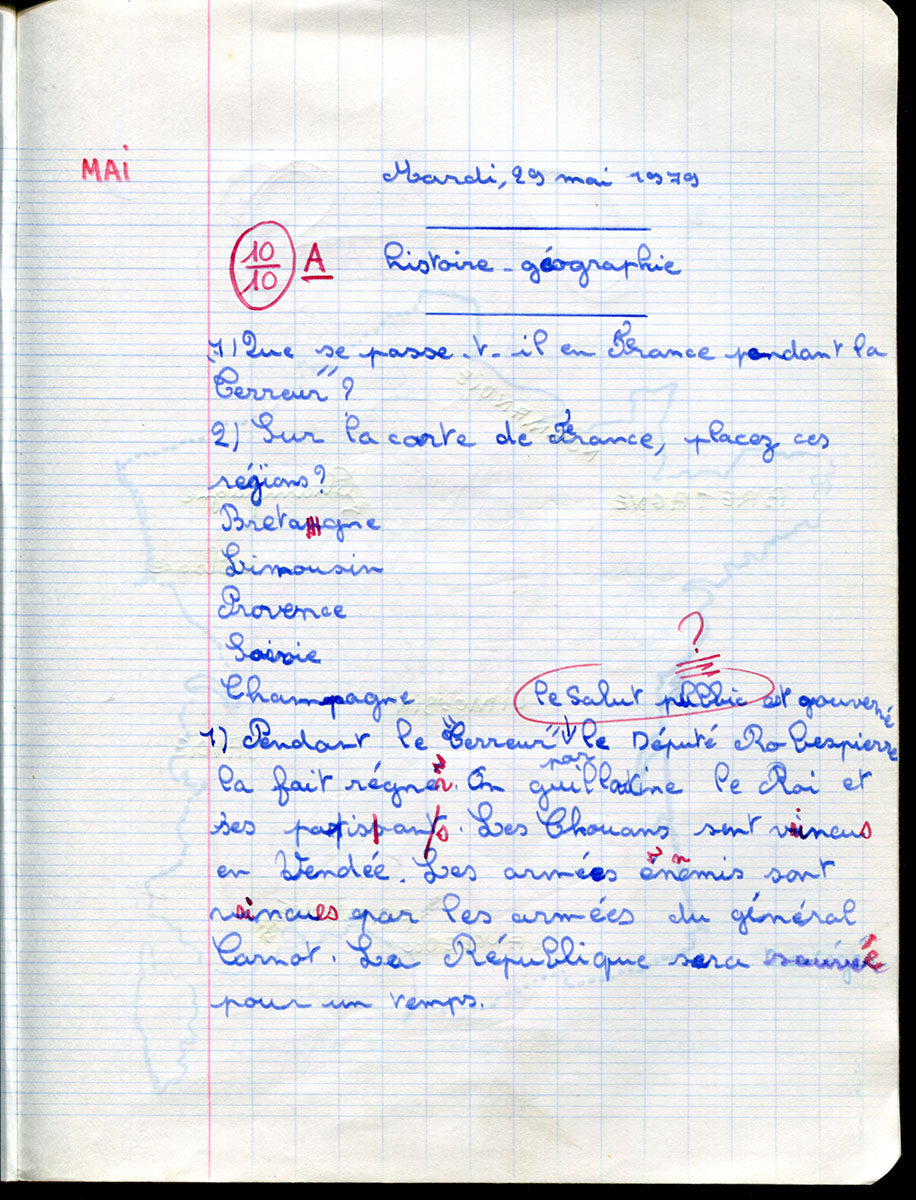 MAI
Mardi, 29 mai 1979
10/10 A histoire - géographie
1) Que se passe-t-il en France pendant la
Terreur" ?
2) Sur la carte de France, placez ces
régions ?
Bretagne
Limousin
Provence
Savoie
Champagne
?
le Salut public est gouverné
1) Pendant la "Terreur" le Député Robespierre
par
la fait régner. On guillotine le Roi et
ses partisans. Les Chouans sont vaincus
en Vendée. Les armées ennemis sont
vaincues par les armées du général
Carnot. La République sera sauvée
pour un temps.
NORMANDIE
BRETAGNE